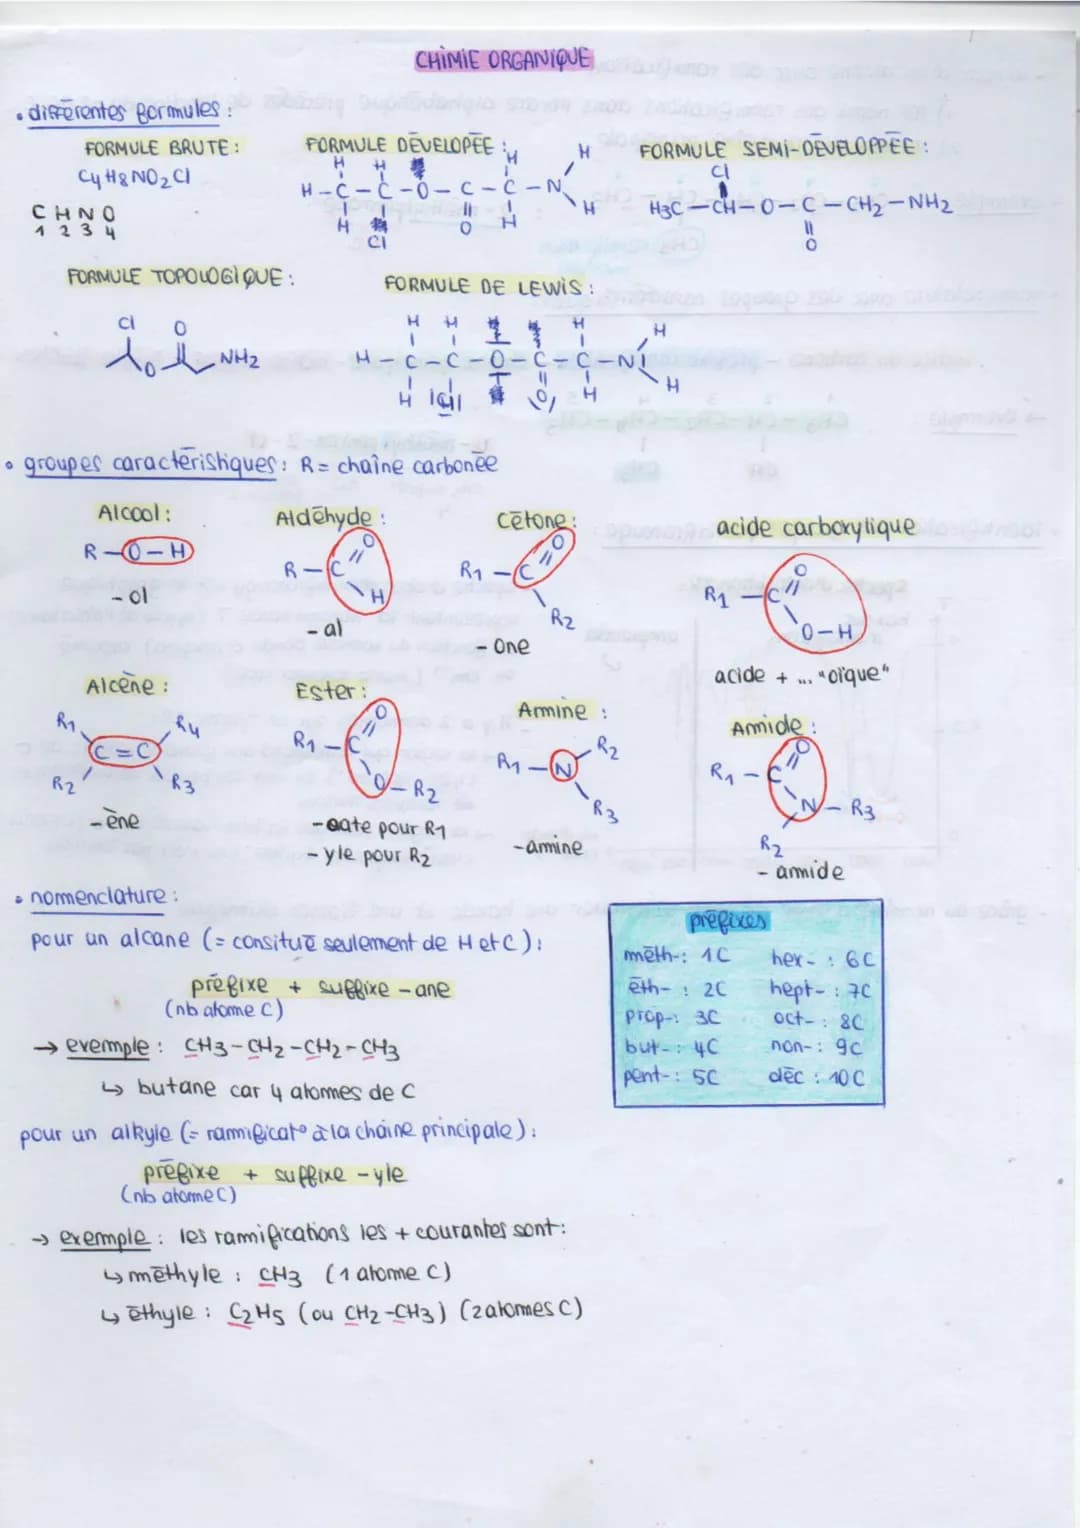 CHIMIE ORGANIQUE
• différentes formules :
FORMULE BRUTE :
C4H8NO2Cl
C H N O
1 2 3 4
FORMULE DÉVELOPÉE :
H H H H
H-C-C-O-C-C-N
H Cl O H H
FORMULE SEMI-DÉVELOPPÉE :
Cl
H3C-CH-O-C-CH2-NH2
O
FORMULE TOPOLOGIQUE :
Cl O
O NH2
FORMULE DE LEWIS :
H H H H
H-C-C-O-C-C-N
H Cl O H H
• groupes caractéristiques : R = chaîne carbonée
Alcool :
R-O-H
-ol
Aldéhyde :
O
R-C
H
-al
Cétone :
O
R1-C
R2
-one
acide carboxylique
O
R1-C
O-H
acide + ... "oïque"
Alcène :
R1 R4
C=C
R2 R3
-ène
Ester :
O
R1-C
O-R2
-oate pour R1
-yle pour R2
Amine :
R1-N R2
R3
-amine
Amide :
O
R1-C
N-R3
R2
- amide
• nomenclature :
pour un alcane (= consitué seulement de H et C) :
préfixe + suffixe -ane
(nb atome C)
→ exemple : CH3-CH2-CH2-CH3
↳ butane car 4 atomes de C
pour un alkyle (= rammificat° à la chaîne principale) :
préfixe + suffixe -yle
(nb atome C)
→ exemple : les ramifications les + courantes sont :
↳ méthyle : CH3 (1 atome C)
↳ éthyle : C2H5 (ou CH2-CH3) (2 atomes C)
préfixes
méth- : 1C hex- : 6C
éth- : 2C hept- : 7C
prop- : 3C oct- : 8C
but- : 4C non- : 9C
pent- : 5C déc : 10C